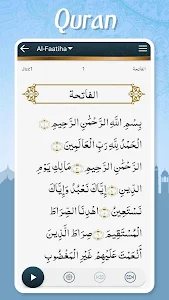 Quran
Al-Faatiha
Juz1
1
الفاتحة
الفاتحة
بِسْمِ اللَّهِ الرَّحْمَٰنِ الرَّحِيمِ ١
الْحَمْدُ لِلَّهِ رَبِّ الْعَالَمِينَ ٢
الرَّحْمَٰنِ الرَّحِيمِ ٣ مَالِكِ يَوْمِ
الدِّينِ ٤ إِيَّاكَ نَعْبُدُ وَإِيَّاكَ
نَسْتَعِينُ ٥ اهْدِنَا الصِّرَاطَ
الْمُسْتَقِيمَ ٦ صِرَاطَ الَّذِينَ
أَنْعَمْتَ عَلَيْهِمْ غَيْرِ الْمَغْضُوبِ